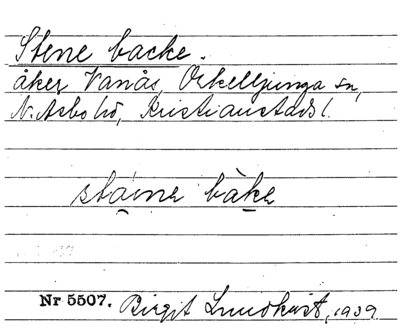 Stene backe.
åker Vanås, Örkelljunga sn,
N. Åsbo hd, Kristianstads l.
stáine bàke
Nr 5507. Birgit Lundkvist, 1939.